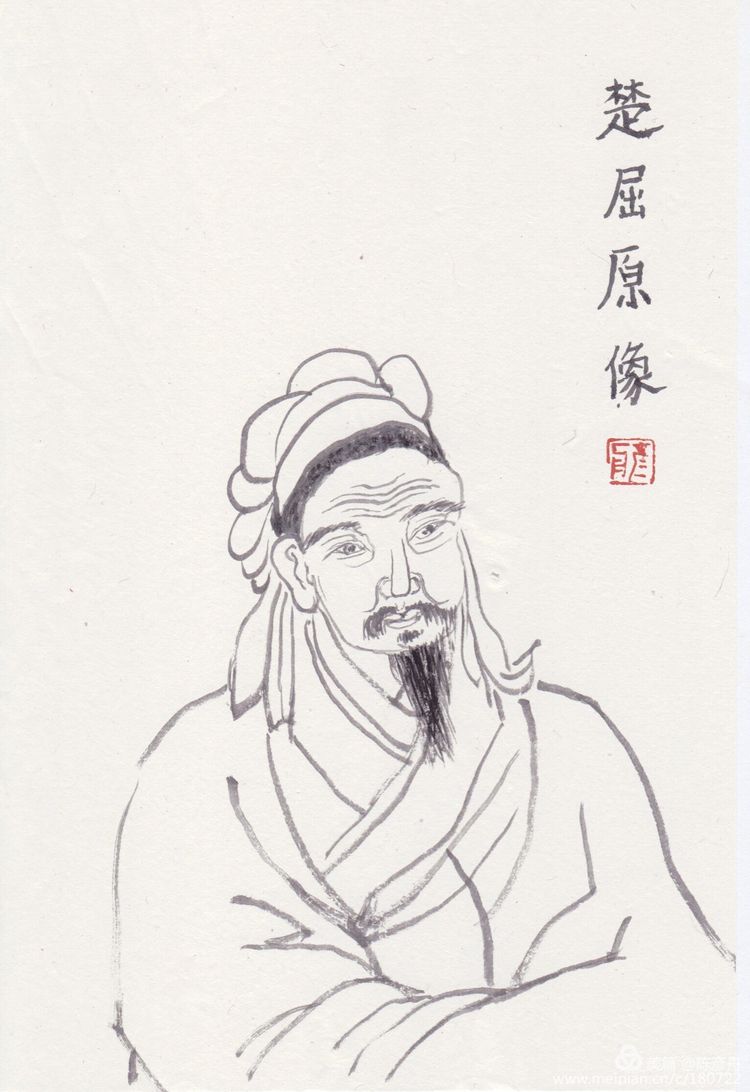 楚屈原像
美篇
www.meipian.cn/c/160722